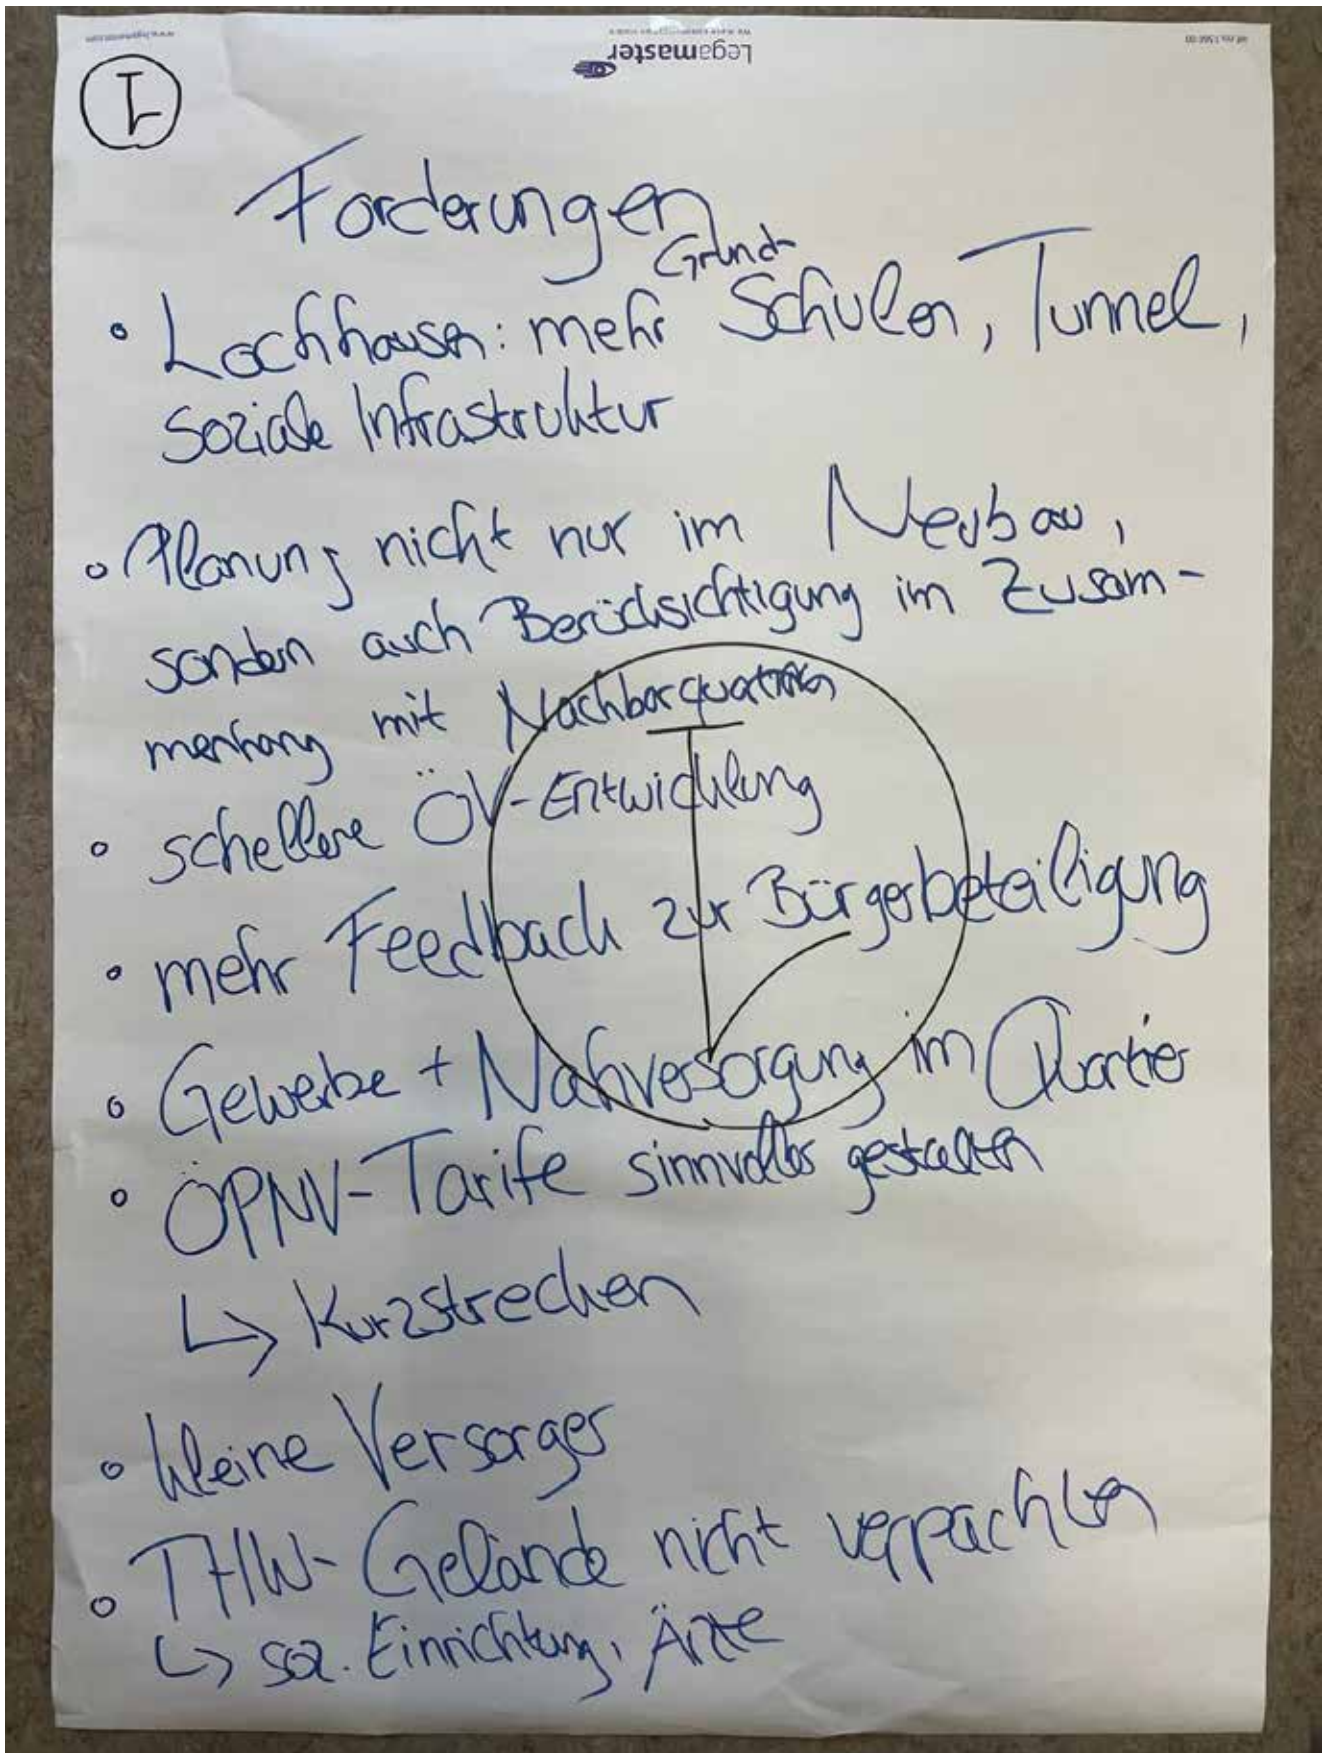 Legamaster
1
Forderungen
Grund-
• Lochhausen: mehr Schulen, Tunnel,
soziale Infrastruktur
• Planung nicht nur im Neubau,
sondern auch Berücksichtigung im Zusam-
menhang mit Nachbarquartieren
• schellere ÖV-Entwicklung
• mehr Feedback zur Bürgerbeteiligung
• Gewerbe + Nahversorgung im Quartier
• ÖPNV-Tarife sinnvoller gestalten
↳ Kurzstrecken
• kleine Versorger
• THW-Gelände nicht verpachten
↳ soz. Einrichtung, Ärzte
1